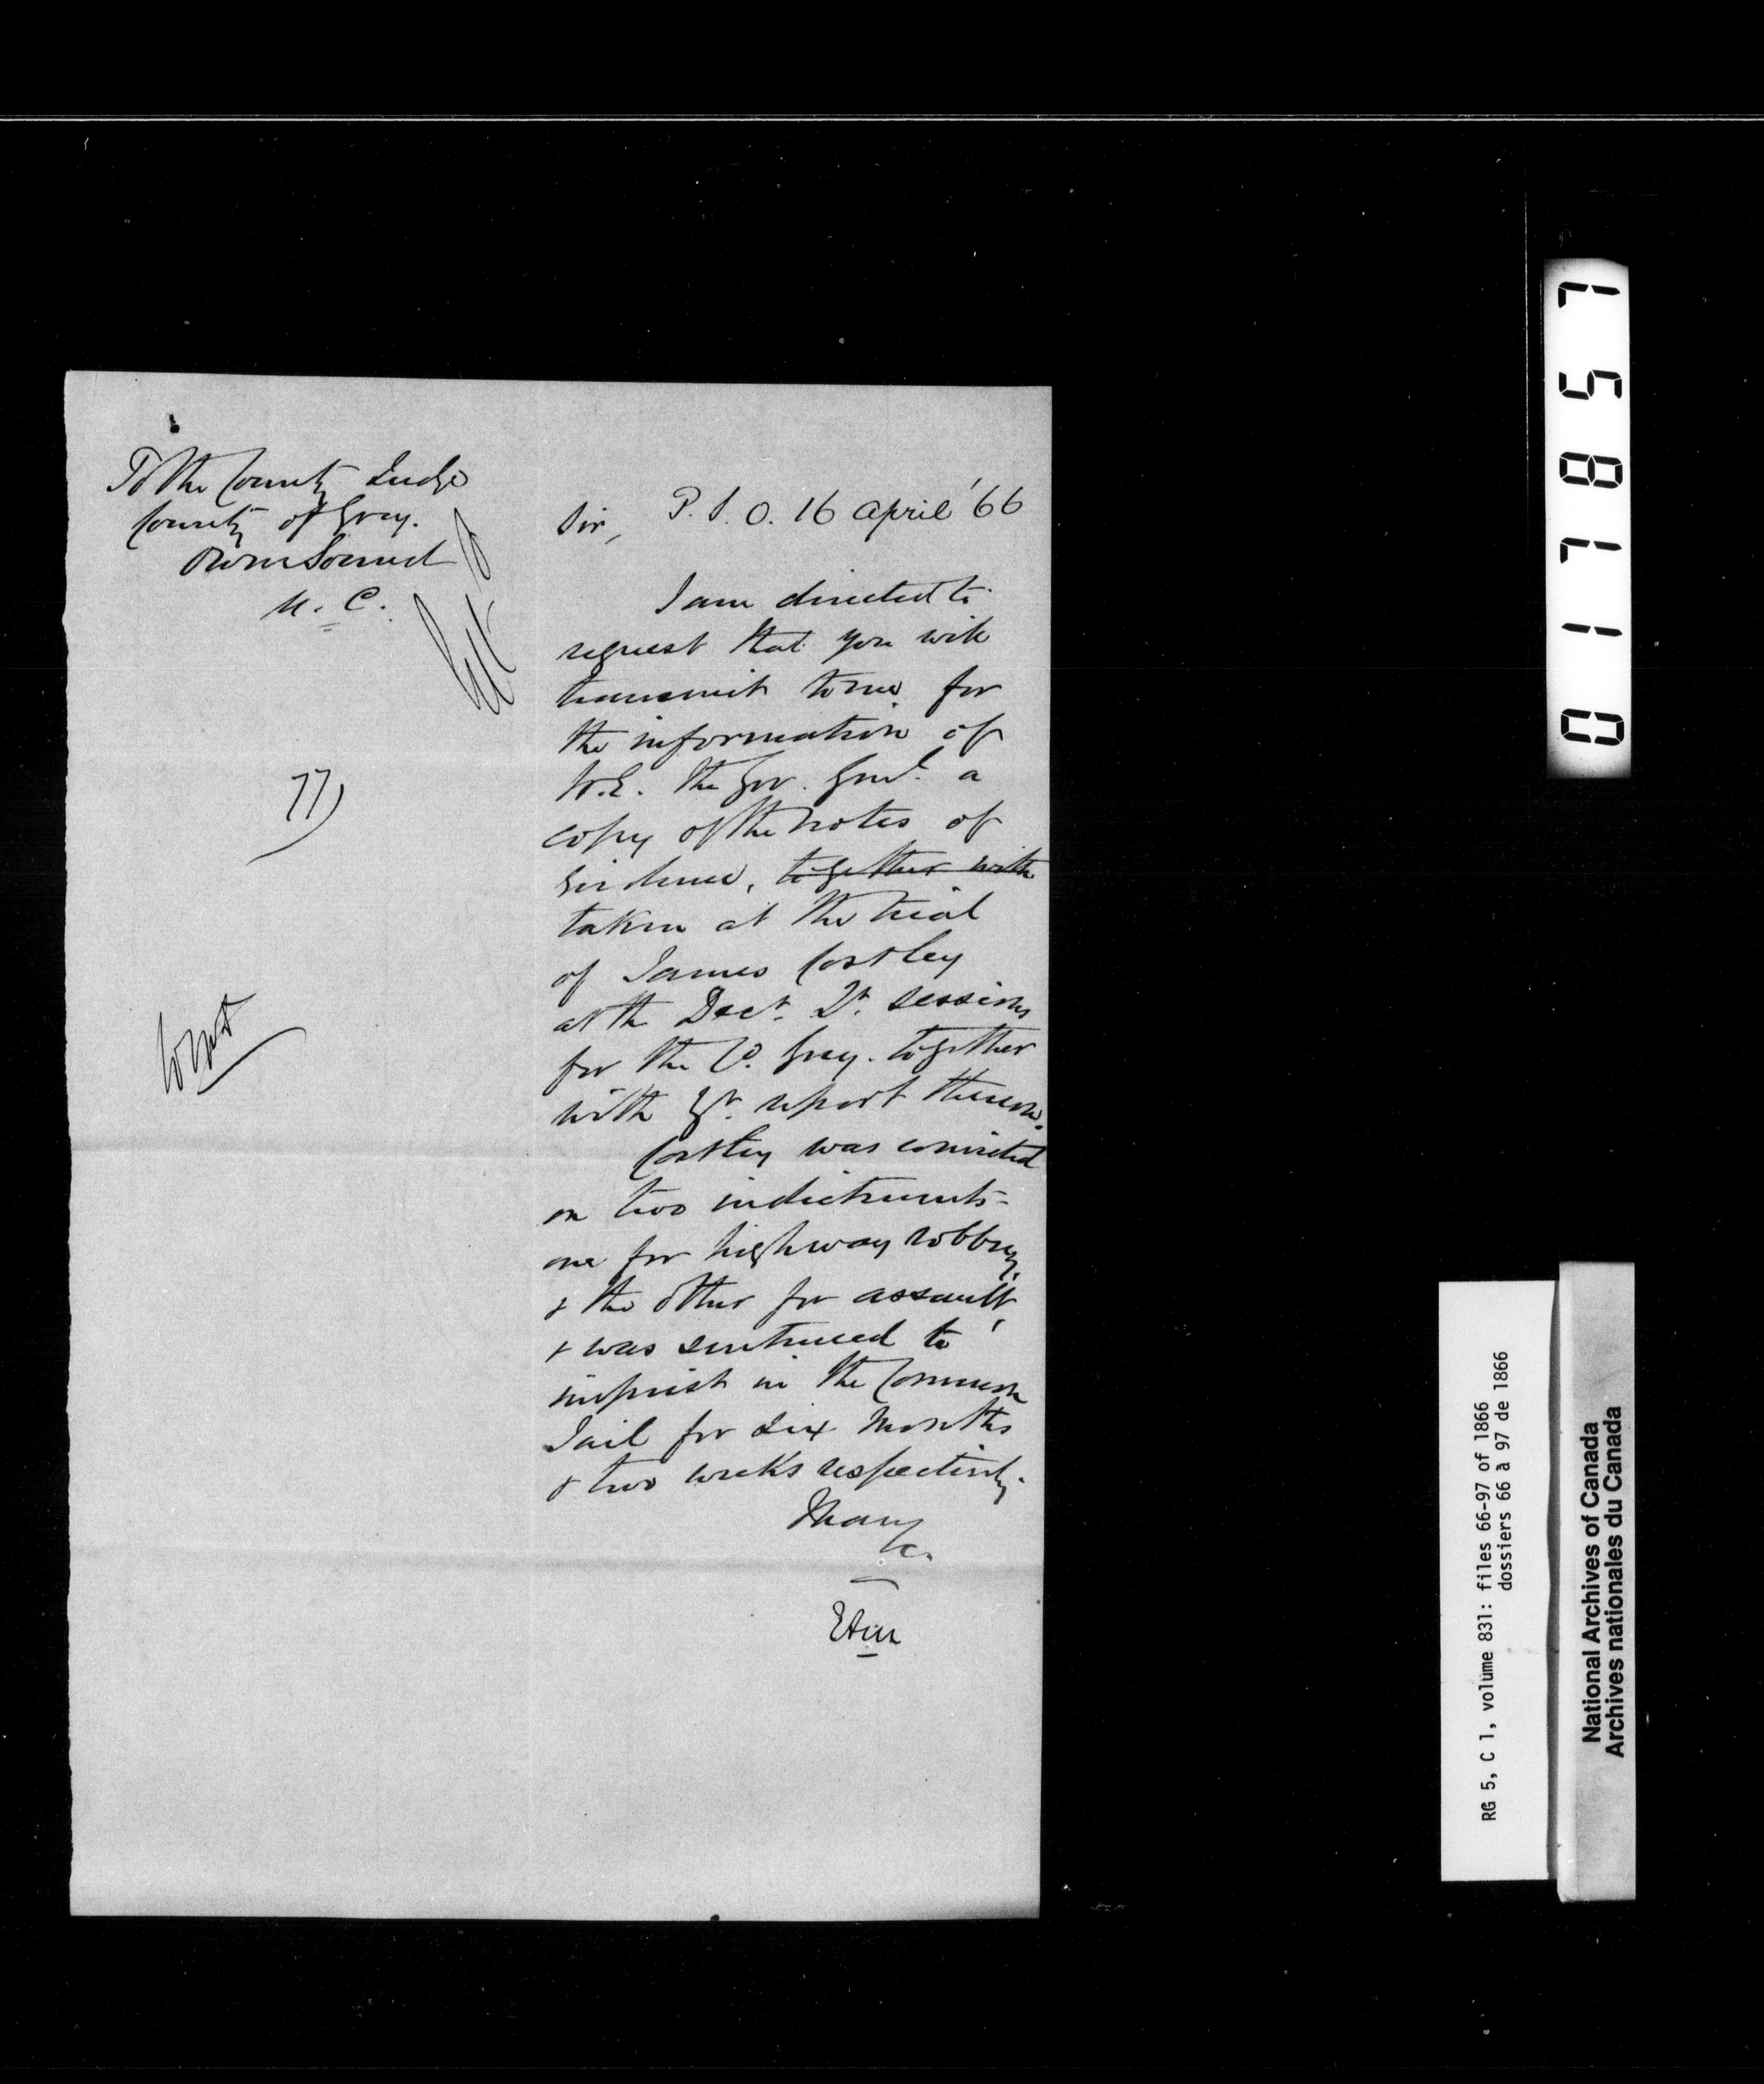 To the County Judge
County of Grey.
Owen Sound
U. C.
77)
P. S. O. 16 april '66
Sir,
I am directed to
request that you will
transmit to me for
the information of
H.E. the Gov. Genl. a
copy of the notes of
Evidence, together with
taken at the trial
of James Costley
at the Decr. Qr. sessions
for the Co. Grey. together
with yr. report thereon.
Costley was convicted
on two indictments -
one for highway robbery,
& the other for assault,
& was sentenced to
imprist in the Common
Jail for six months
& two weeks respectively.
I have
&c.
01187 5 7
RG 5, C 1, volume 831: files 66-97 of 1866
dossiers 66 à 97 de 1866
National Archives of Canada
Archives nationales du Canada